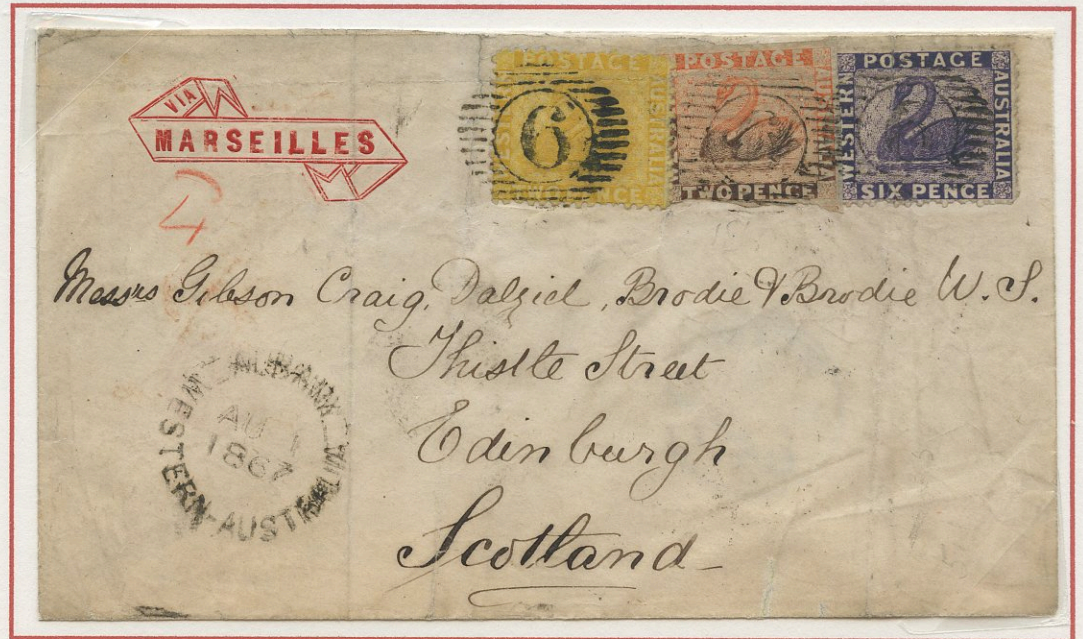 VIA
MARSEILLES
POSTAGE
AUSTRALIA
TWO PENCE
6
POSTAGE
TWO PENCE
POSTAGE
WESTERN
AUSTRALIA
SIX PENCE
Messrs Gibson Craig, Dalziel, Brodie & Brodie W. S.
Thistle Street
Edinburgh
Scotland
AU 1
1867
WESTERN-AUSTRALIA